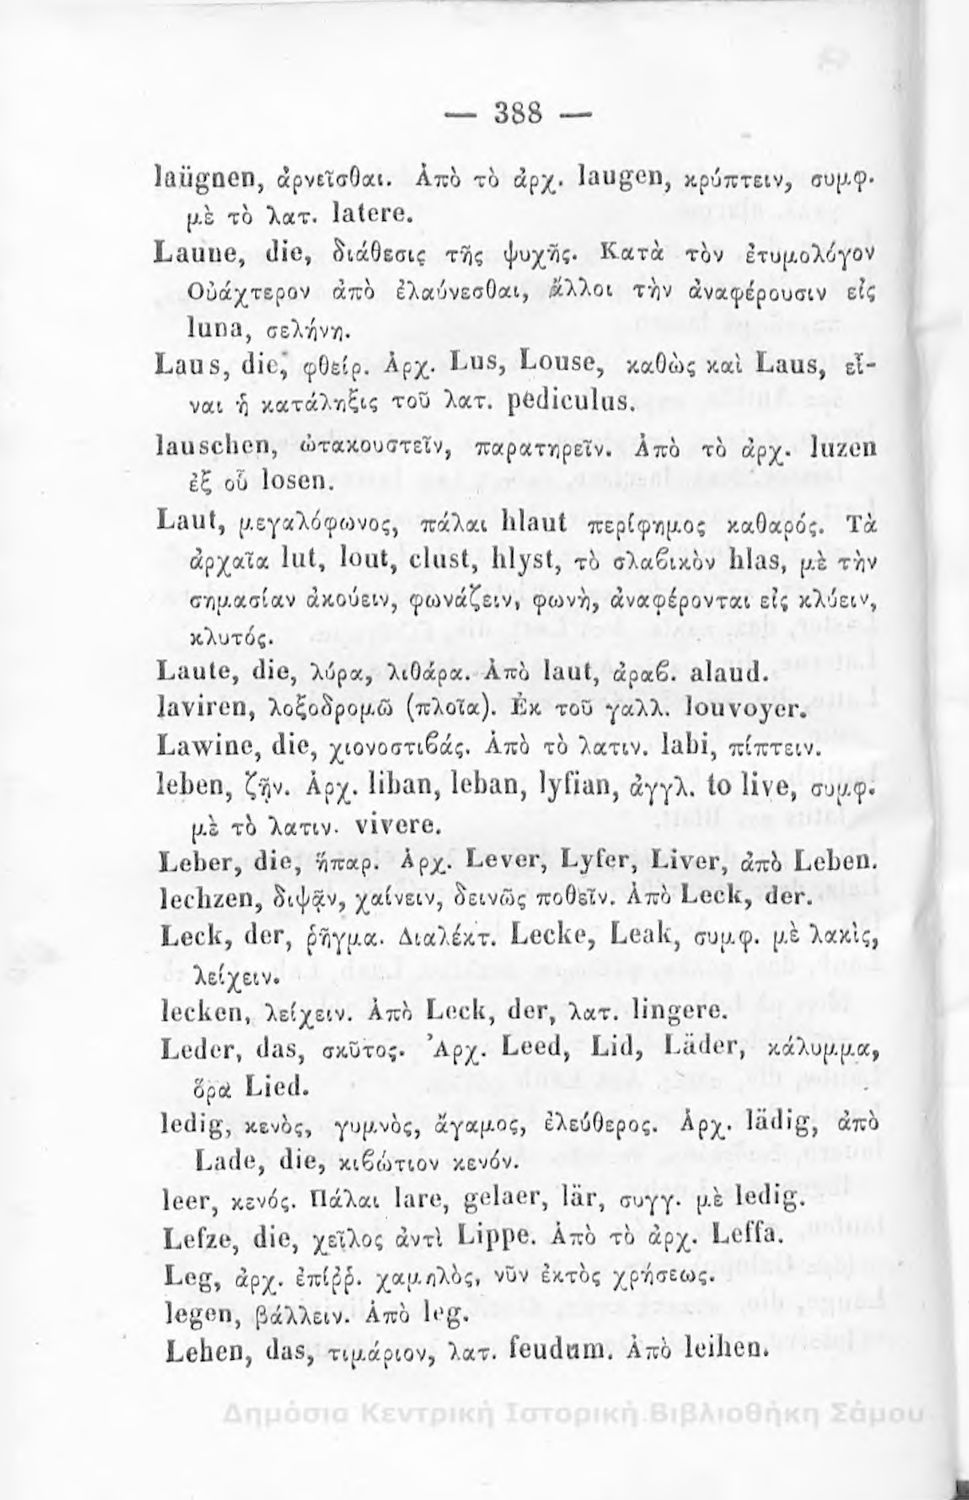 — 388 —
laügnen, ἀρνεῖσθαι. Ἀπὸ τὸ ἀρχ. laugen, κρύπτειν, συμφ.
μὲ τὸ λατ. latere.
Laune, die, διάθεσις τῆς ψυχῆς. Κατὰ τὸν ἐτυμολόγον
Οὐάχτερον ἀπὸ ἐλαύνεσθαι, ἄλλοι τὴν ἀναφέρουσιν εἰς
luna, σελήνη.
Laus, die, φθείρ. Ἀρχ. Lus, Louse, καθὼς καὶ Laus, εἶ-
ναι ἡ κατάληξις τοῦ λατ. pediculus.
lauschen, ὠτακουστεῖν, παρατηρεῖν. Ἀπὸ τὸ ἀρχ. luzen
ἐξ οὗ losen.
Laut, μεγαλόφωνος, πάλαι hlaut περίφημος καθαρός. Τὰ
ἀρχαῖα lut, lout, clust, hlyst, τὸ σλαβικὸν hlas, μὲ τὴν
σημασίαν ἀκούειν, φωνάζειν, φωνὴ, ἀναφέρονται εἰς κλύειν,
κλυτός.
Laute, die, λύρα, λιθάρα. Ἀπὸ laut, ἀραβ. alaud.
laviren, λοξοδρομῶ (πλοῖα). Ἐκ τοῦ γαλλ. louvoyer.
Lawine, die, χιονοστιβάς. Ἀπὸ τὸ λατιν. labi, πίπτειν.
leben, ζῆν. Ἀρχ. liban, leban, lyfian, ἀγγλ. to live, συμφ.
μὲ τὸ λατιν. vivere.
Leber, die, ἧπαρ. Ἀρχ. Lever, Lyfer, Liver, ἀπὸ Leben.
lechzen, διψᾷν, χαίνειν, δεινῶς ποθεῖν. Ἀπὸ Leck, der.
Leck, der, ῥῆγμα. Διαλέκτ. Lecke, Leak, συμφ. μὲ λακὶς,
λείχειν.
lecken, λείχειν. Ἀπὸ Leck, der, λατ. lingere.
Leder, das, σκῦτος. Ἀρχ. Leed, Lid, Läder, κάλυμμα,
ὅρα Lied.
ledig, κενὸς, γυμνὸς, ἄγαμος, ἐλεύθερος. Ἀρχ. lädig, ἀπὸ
Lade, die, κιβώτιον κενόν.
leer, κενός. Πάλαι lare, gelaer, lär, συγγ. μὲ ledig.
Lefze, die, χεῖλος ἀντὶ Lippe. Ἀπὸ τὸ ἀρχ. Leffa.
Leg, ἀρχ. ἐπίῤῥ. χαμηλὸς, νῦν ἐκτὸς χρήσεως.
legen, βάλλειν. Ἀπὸ leg.
Lehen, das, τιμάριον, λατ. feudum. Ἀπὸ leihen.
Δημόσια Κεντρική Ιστορική Βιβλιοθήκη Σάμου